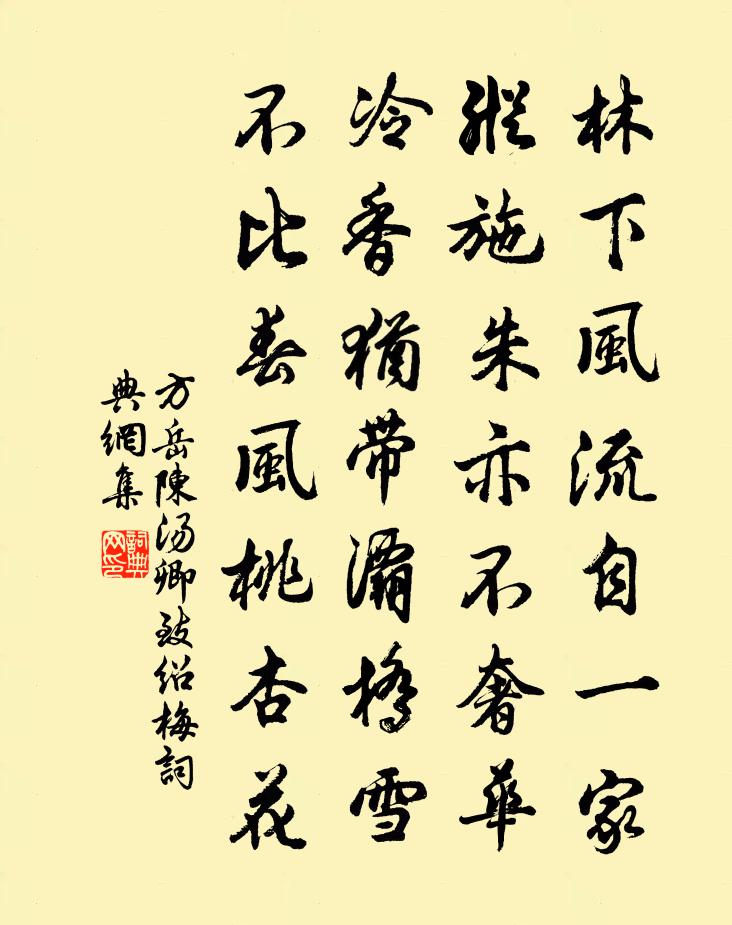 林下風流自一家
縱施朱亦不奢華
冷香猶帶灞橋雪
不比春風桃杏花
方岳陳湯卿致紹梅詞
典網集
詞典网印